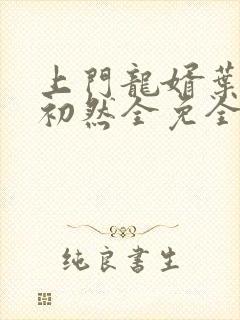 上門龍婿葉
初然全免全
纯良書生